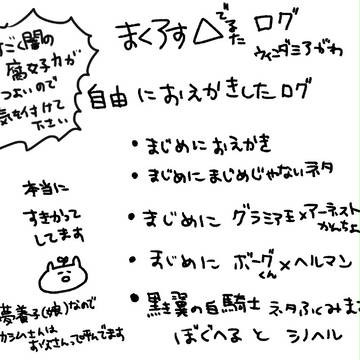 すごく闇の
腐女子力が
つよいので
気を付けて
下さい
まくろす△でるた ログ
ウィンダミアがわ
自由におえかきしたログ
・まじめにおえかき
・まじめにまじめじゃないネタ
・まじめに グラミア王×アーネスト
かんちょ
・まじめに ボーグくん×ヘルマン
・黒き翼の白騎士 ネタふくみます
ぼぐへると シノヘル
本当に
すきかって
してます
夢養子(娘)なので
カシムさんは
お父さんって呼んでます